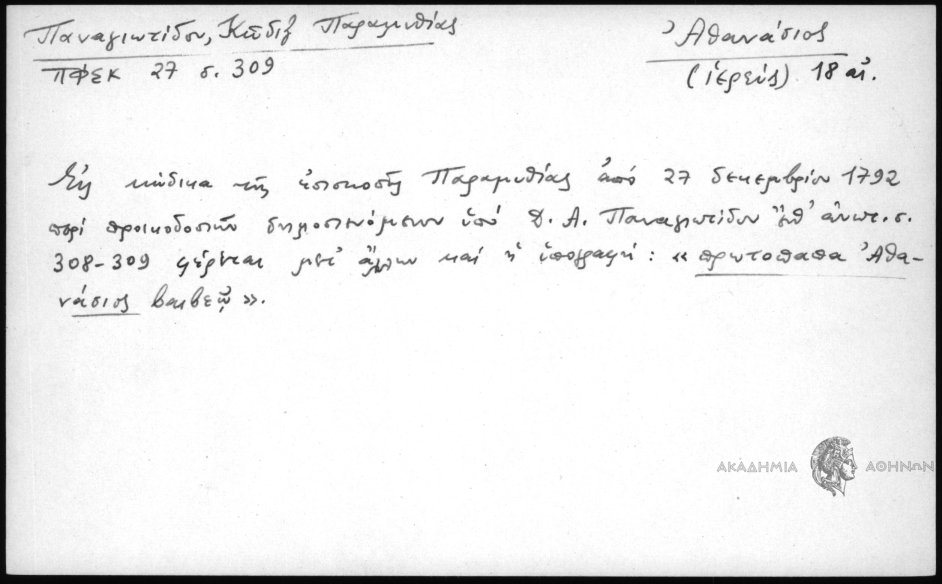 Παναγιωτίδου, Κῶδιξ Παραμυθίας
ΠΦΣΚ 27 σ. 309
Ἀθανάσιος
(ἱερεύς) 18 αἰ.
Εἰς κώδικα τῆς ἐπισκοπῆς Παραμυθίας ἀπό 27 δεκεμβρίου 1792
περί προικοδοσιῶν δημοσιευόμενον ὑπό Δ. Α. Παναγιωτίδου ἔνθ' ἀνωτ. σ.
308-309 φέρεται μετ' ἄλλων καί ἡ ὑπογραφή: «πρωτοπαπα Ἀθα-
νάσιος
».
ΑΚΑΔΗΜΙΑ ΑΘΗΝΩΝ